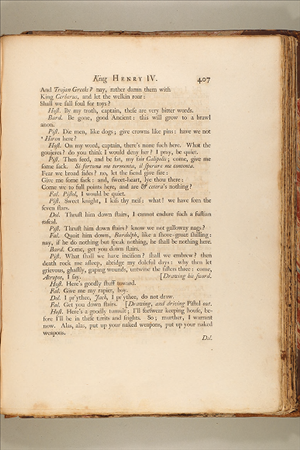 King HENRY IV. 407
And Trojan Greeks? nay, rather damn them with
King Cerberus, and let the welkin roar:
Shall we fall foul for toys?
Host. By my troth, captain, these are very bitter words.
Bard. Be gone, good Ancient: this will grow to a brawl
anon.
Pist. Die men, like dogs; give crowns like pins: have we not
* Hiren here?
Host. On my word, captain, there's none such here. What the
goujeres? do you think I would deny her? I pray, be quiet.
Pist. Then feed, and be fat, my fair Calipolis; come, give me
some sack. Si fortuna me tormenta, il sperare me contenta.
Fear we broad sides? no, let the fiend give fire:
Give me some sack: and, sweet-heart, lye thou there:
Come we to full points here, and are & cetera's nothing?
Fal. Pistol, I would be quiet.
Pist. Sweet knight, I kiss thy neif: what! we have seen the
seven stars.
Dol. Thrust him down stairs, I cannot endure such a fustian
rascal.
Pist. Thrust him down stairs? know we not galloway nags?
Fal. Quoit him down, Bardolph, like a shove-groat shilling:
nay, if he do nothing but speak nothing, he shall be nothing here.
Bard. Come, get you down stairs.
Pist. What shall we have incision? shall we embrew? then
death rock me asleep, abridge my doleful days: why then let
grievous, ghastly, gaping wounds, untwine the sisters three: come,
Atropos, I say. [Drawing his sword.
Host. Here's goodly stuff toward.
Fal. Give me my rapier, boy.
Dol. I pr'ythee, Jack, I pr'ythee, do not draw.
Fal. Get you down stairs. [Drawing, and driving Pistol out.
Host. Here's a goodly tumult; I'll forswear keeping house, be-
fore I'll be in these tirrits and frights. So; murther, I warrant
now. Alas, alas, put up your naked weapons, put up your naked
weapons.
Dol.